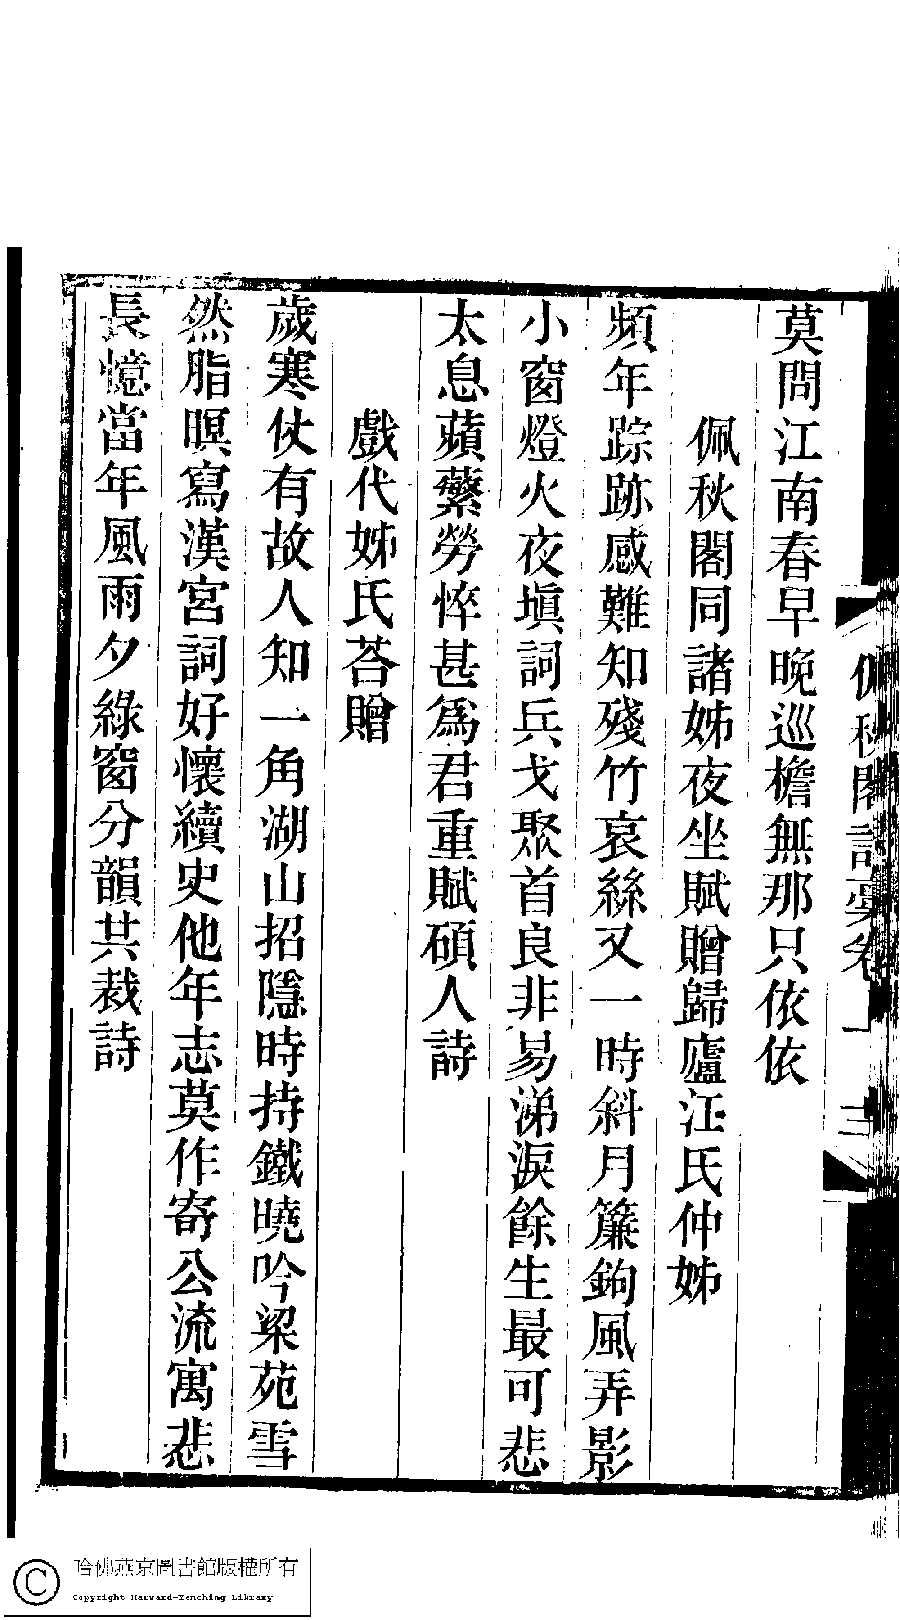 莫問江南春早晚巡檐無那只依依
佩秋閣同諸姊夜坐賦贈歸廬江氏仲姊
頻年踪跡感難知殘竹哀絲又一時斜月簾鉤風弄影
小窗燈火夜塡詞兵戈聚首良非易涕淚餘生最可悲
太息蘋蘩勞悴甚爲君重賦碩人詩
戲代姊氏荅贈
歲寒仗有故人知一角湖山招隱時持鐵曉吟梁苑雪
然脂暝寫漢宮詞好懷續史他年志莫作寄公流寓悲
長憶當年風雨夕綠窗分韻共裁詩
佩秋閣詩卷
哈佛燕京圖書館版權所有
Copyright Harvard-Yenching Library